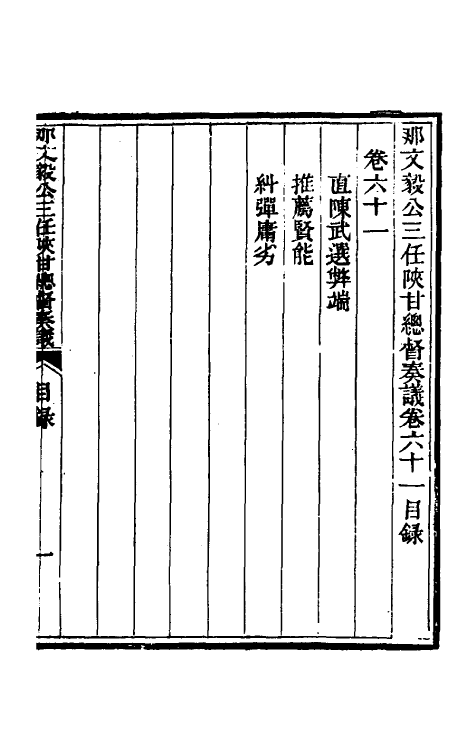 那文毅公三任陝甘總督奏議卷六十一目録
卷六十一
直陳武選弊端
推薦賢能
糾彈庸劣
那文毅公三任陝甘總督奏議
目録
一